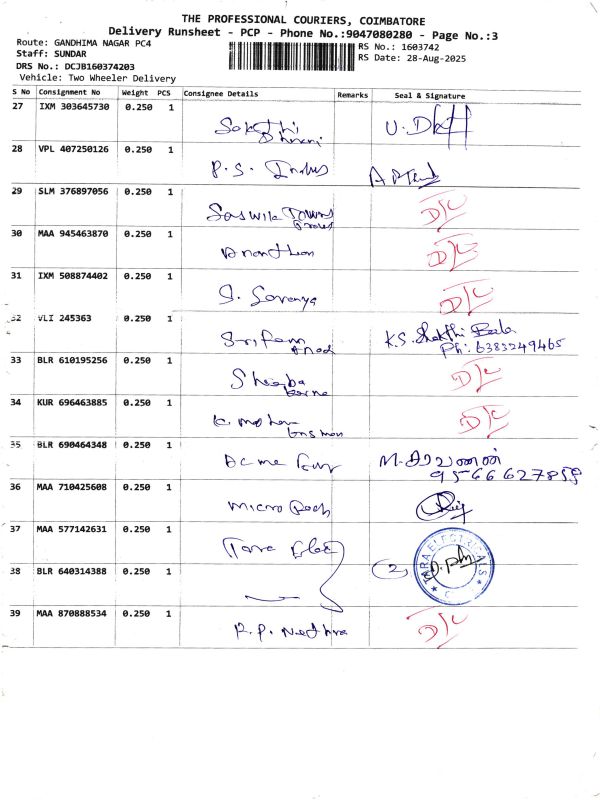 THE PROFESSIONAL COURIERS, COIMBATORE
Delivery Runsheet - PCP - Phone No.:9047080280 - Page No.:3
Route: GANDHIMA NAGAR PC4
RS No.: 1603742
Staff: SUNDAR
RS Date: 28-Aug-2025
DRS No.: DCJB160374203
Vehicle: Two Wheeler Delivery
S No Consignment No Weight PCS Consignee Details Remarks Seal & Signature
27 IXM 303645730 0.250 1
Sakthi
28 VPL 407250126 0.250 1
P. S. Indus
29 SLM 376897056 0.250 1
D/C
30 MAA 945463870 0.250 1
Ananthan D/C
31 IXM 508874402 0.250 1
S. Saranya D/C
32 VLI 245363 0.250 1
K.S. Shakthi Bala
Ph: 6383249465
33 BLR 610195256 0.250 1
D/C
34 KUR 696463885 0.250 1
K. Mohan D/C
35 BLR 690464348 0.250 1
Acme M. சரவணன்
36 MAA 710425608 0.250 1
Micro
37 MAA 577142631 0.250 1
Tara Elec TARA ELECTRICALS
38 BLR 640314388 0.250 1
2
39 MAA 870888534 0.250 1
R.P. Nethra D/C